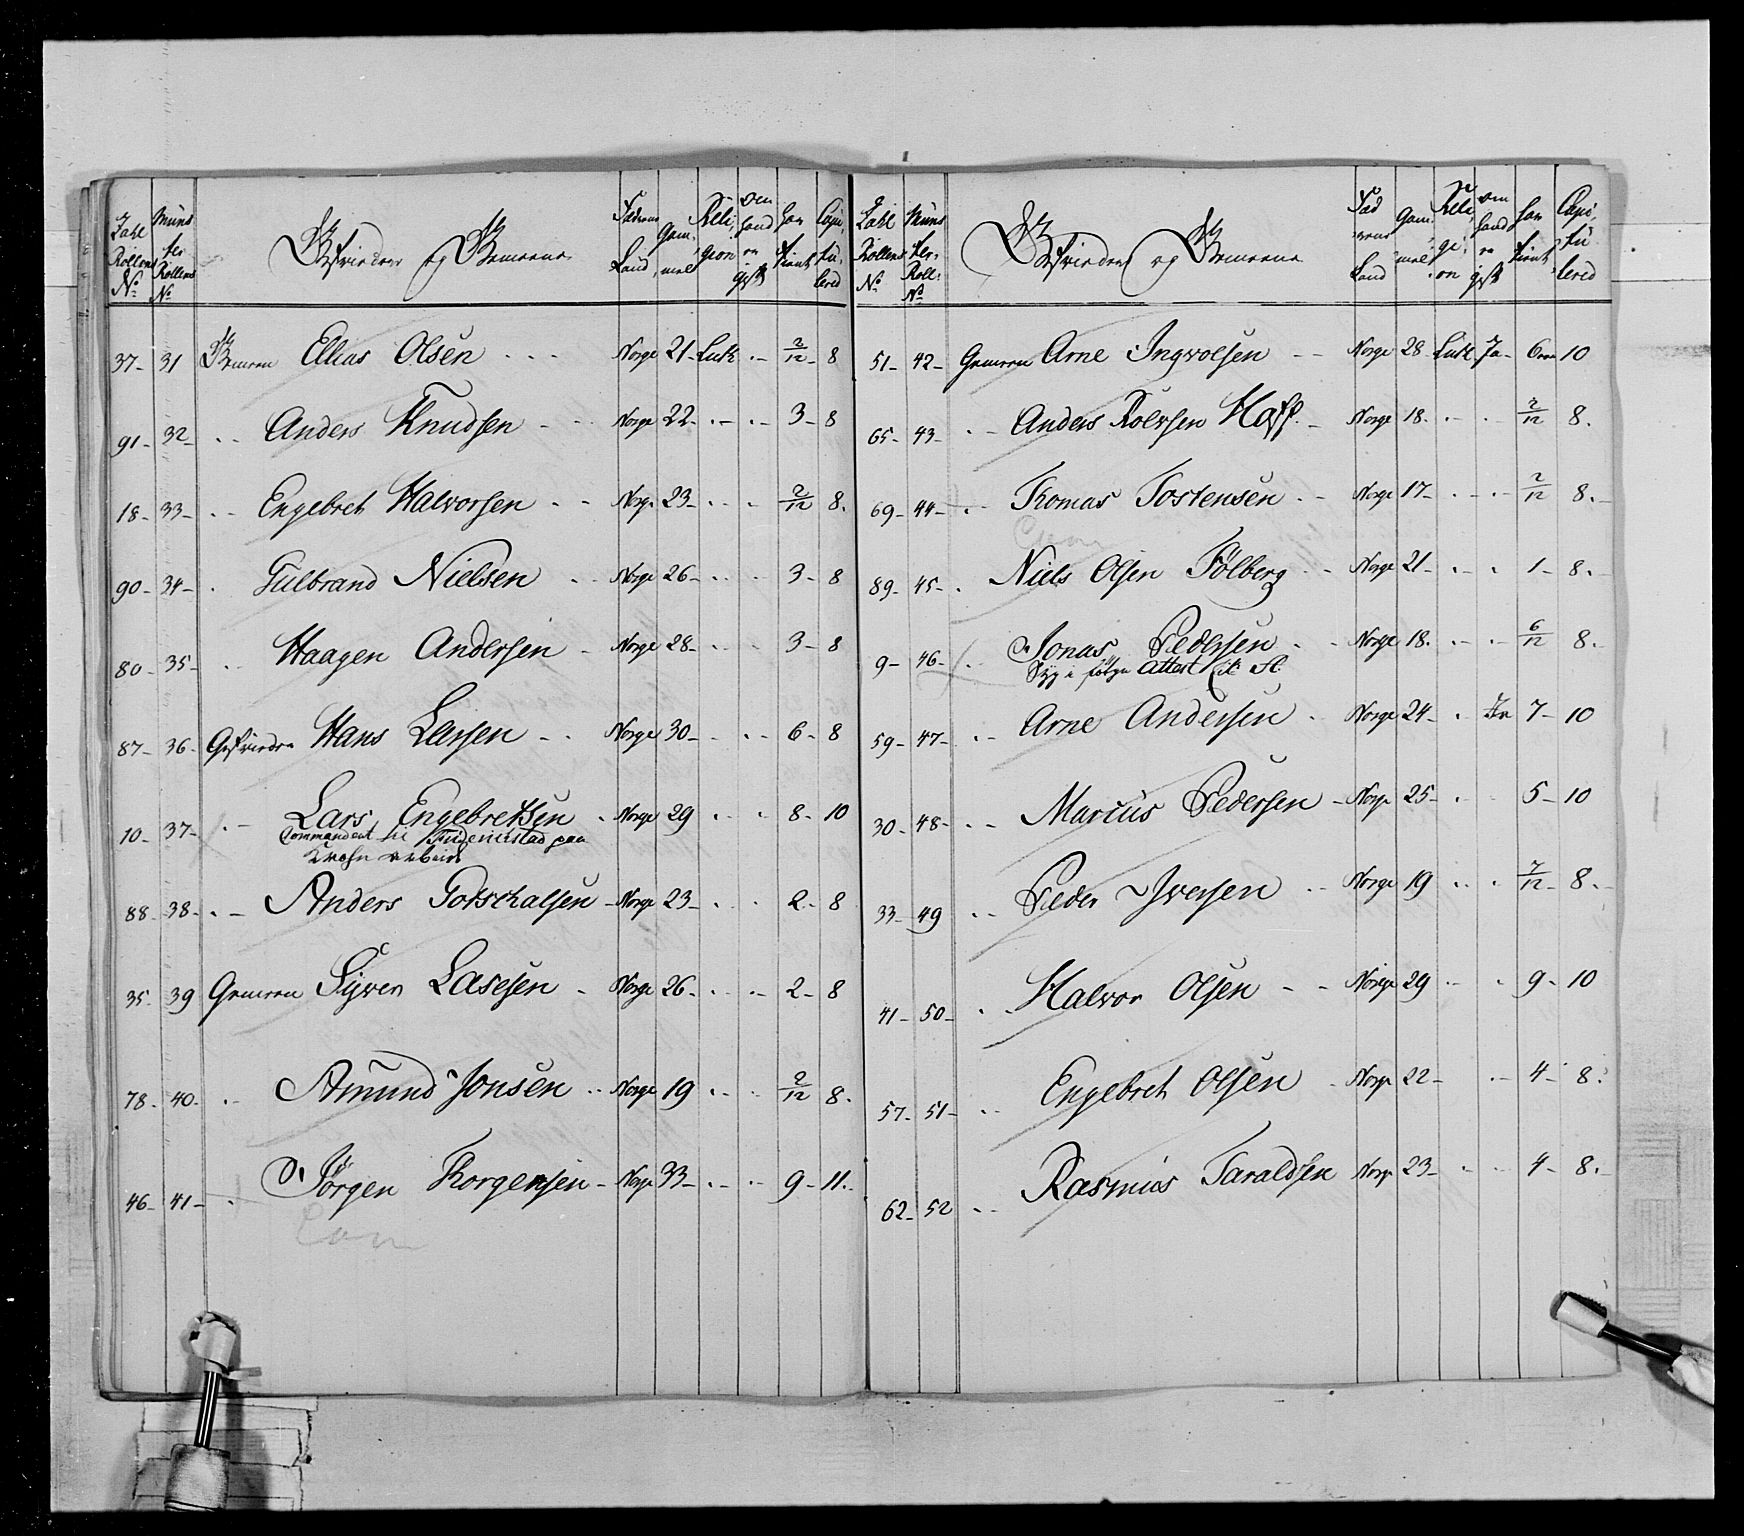 Zahl Rollens No | Münster Rollens No | Gefrieder og Gemeene | Fædrene Land | Gammel | Religion | om hand er gift | har tient | Capitulered
37 - 31 Gemeen Ellias Olsen - - - Norge 21 - Luth - 2/12 - 8
91 - 32 - - Anders Knudsen - - - Norge 22 - - - 3 - 8
18 - 33 - - Engebret Halvorsen - - Norge 23 - - - 2/12 8.
90 - 34 - - Gulbrand Nielsen - - Norge 26 - - - 3 - 8
80 - 35 - - Haagen Andersen - Norge 28 - - - 3 - 8
87 - 36 - Gefrieder Hans Larsen - - Norge 30 - - - 6 - 8
10 - 37 - - Lars Engebretsen - Norge 29 - - 8 - 10
Commandert til Friderichstad paa
arbeide
88 - 38 - - Anders Gotschalsen - Norge 23 - - - 2 - 8
35 - 39 Gemeen Syver Lasesen - Norge 26 - - - 2 - 8
78 - 40 - - Amund Jonsen - - Norge 19 - - 2/12 8.
46 - 41 - - Jørgen Thorgersen - Norge 33 - - - 9 - 11.
Com
Zahl Rollens No | Münster Roll: No | Gefrieder og Gemeene | Fædrene Land | Gammel | Religion | om hand er gift | har tient | Capitulered
51 - 42 - Gemeen Arne Ingvolsen - - Norge 28 - Luth Ja - 6 - 10
65 - 43 - - Anders Rolvsen Hoff - Norge 18 - - - 2/12 8.
69 - 44 - - Thomas Tostensen - - Norge 17 - - - 2/12 8.
Com
89 - 45 - - Niels Olsen Fölberg - - Norge 21 - - - 1 - 8.
9 - 46 - - Jonas Pedersen - - Norge 18. - - 6/12 8.
Syg i følge Attest
59 - 47 - - Arne Andersen - Norge 24 - - Ja 7 - 10
30 - 48 - - Marcus Pedersen - Norge 25 - - 5 - 10
33 - 49 - - Peder Iversen - - Norge 19 - - 7/12 - 8.
41 - 50 - - Halvor Olsen - - Norge 29 - - 9 - 10
57 - 51 - - Engebret Olsen - Norge 22 - - - 4 - 8.
62 - 52 - - Rasmus Taraldsen Norge 23 - - - 4 - 8.